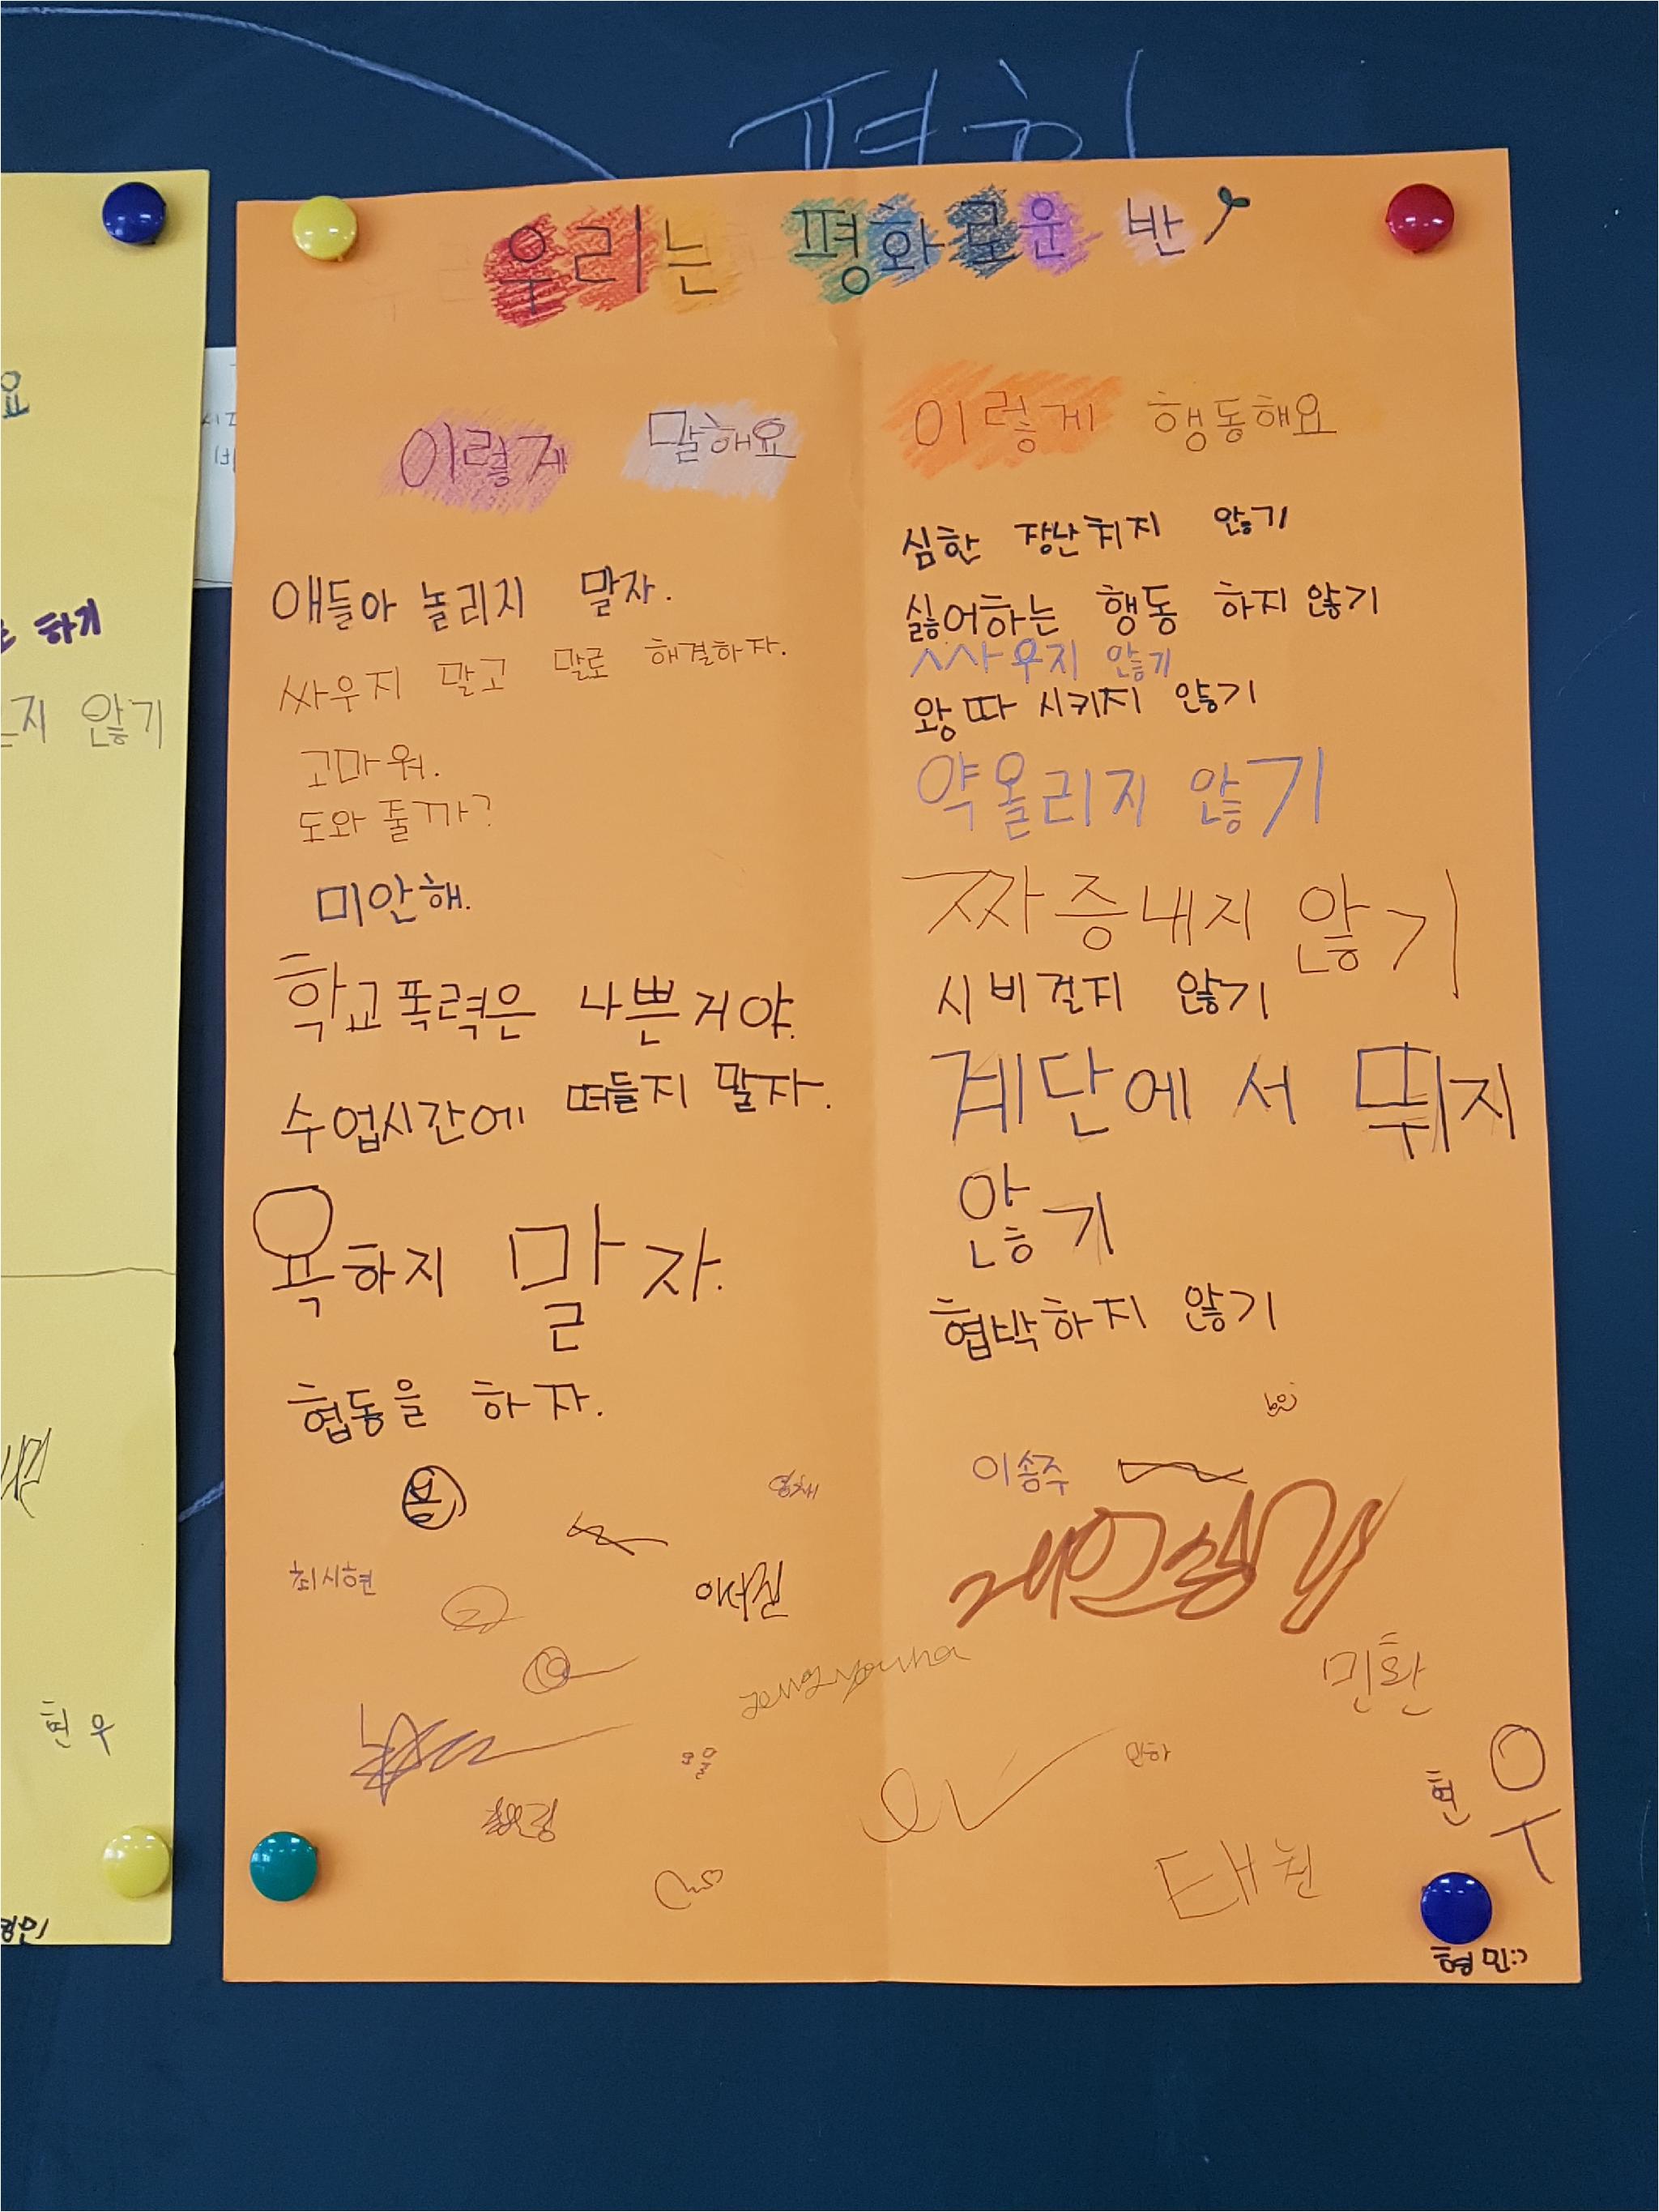 평화
우리는 평화로운 반
이렇게 말해요
애들아 놀리지 말자.
싸우지 말고 말로 해결하자.
고마워.
도와 줄까?
미안해.
학교폭력은 나쁜거야.
수업시간에 떠들지 말자.
욕하지 말자.
협동을 하자.
최시현
이서진
jeungyouna
이렇게 행동해요
심한 장난치지 않기
싫어하는 행동 하지 않기
싸우지 않기
왕따 시키지 않기
약올리지 않기
짜증내지 않기
시비걸지 않기
계단에서 뛰지
않기
협박하지 않기
이송주
민환
현우
태헌
형민:)
요
하기
지 않기
현우